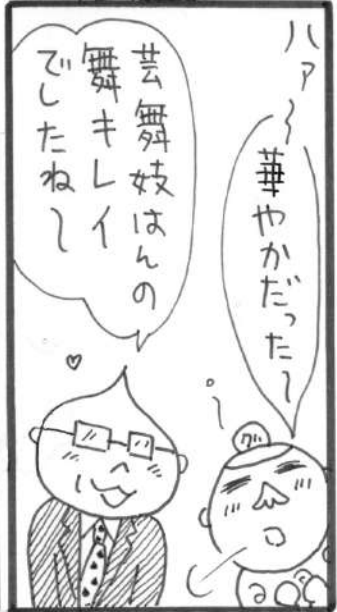 ハァ〜
華やかだった〜
芸舞妓はんの
舞キレイ
でしたね〜